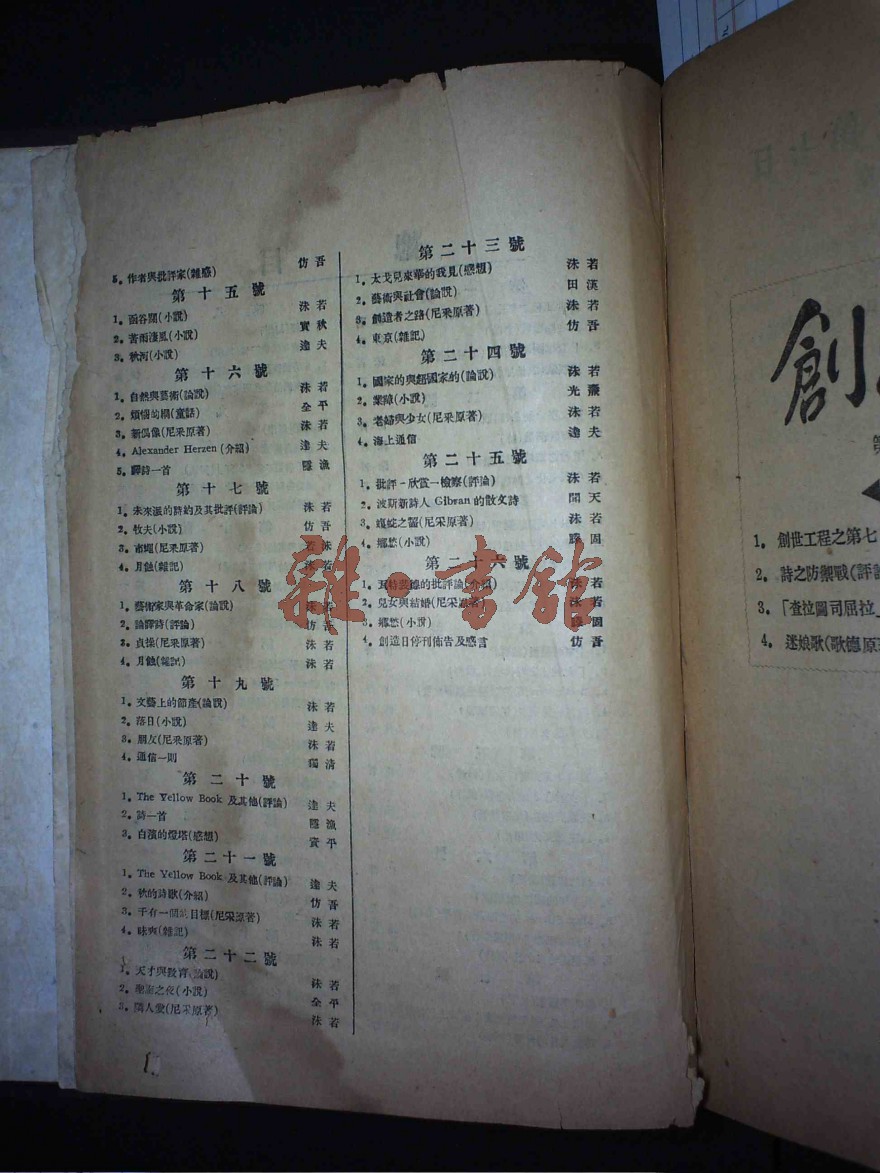 5. 作者與批評家(雜感) 仿吾
第十五號
1. 函谷關(小說) 沫若
2. 苦雨淒風(小說) 實秋
3. 秋河(小說) 達夫
第十六號
1. 自然與藝術(論說) 沫若
2. 煩惱的網(童話) 全平
3. 新偶像(尼采原著) 沫若
4. Alexander Herzen (介紹) 達夫
5. 譯詩一首 隱漁
第十七號
1. 未來派的詩約及其批評(評論) 沫若
2. 牧夫(小說) 仿吾
3. 市蠅(尼采原著) 若沫
4. 月蝕(雜記) 沫若
第十八號
1. 藝術家與革命家(論說) 沫若
2. 論譯詩(評論) 仿吾
3. 貞操(尼采原著) 沫若
4. 月蝕(雜記) 沫若
第十九號
1. 文藝上的節產(論說) 沫若
2. 落日(小說) 達夫
3. 朋友(尼采原著) 沫若
4. 通信一則 獨清
第二十號
1. The Yellow Book 及其他(評論) 達夫
2. 詩一首 隱漁
3. 白濱的燈塔(感想) 資平
第二十一號
1. The Yellow Book 及其他(評論) 達夫
2. 秋的詩歌(介紹) 仿吾
3. 千有一個的目標(尼采原著) 沫若
4. 昧爽(雜記) 沫若
第二十二號
1. 天才與教育(論說) 沫若
2. 之夜(小說) 全平
3. 鄰人愛(尼采原著) 沫若
第二十三號
1. 太戈兒來華的我見(感想) 沫若
2. 藝術與社會(論說) 田漢
3. 創造者之路(尼采原著) 沫若
4. 東京(雜記) 仿吾
第二十四號
1. 國家的與超國家的(論說) 沫若
2. 業障(小說) 光燾
3. 老婦與少女(尼采原著) 沫若
4. 海上通信 達夫
第二十五號
1. 批評－欣賞－檢察(評論) 沫若
2. 波斯新詩人 Gibran 的散文詩 聞天
3. 蝮蛇之齧(尼采原著) 沫若
4. 鄉愁(小說) 滕固
第二十六號
1. 瓦特裴德的批評論(介紹) 沫若
2. 兒女與結婚(尼采原著) 沫若
3. 鄉愁(小說) 滕固
4. 創造日停刊佈告及感言 仿吾
雜·書館
創
1. 創世工程之第七
2. 詩之防禦戰(評論
3. 「查拉圖司屈拉」
4. 迷娘歌(歌德原